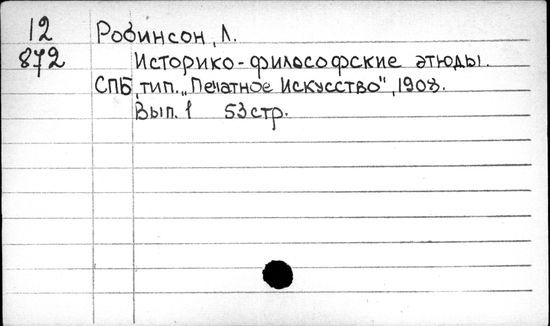 12 Робинсон, Л.
872 Историко-философские этюды.
СПБ, тип. „Печатное Искусство", 1908.
Вып. 1 53 стр.